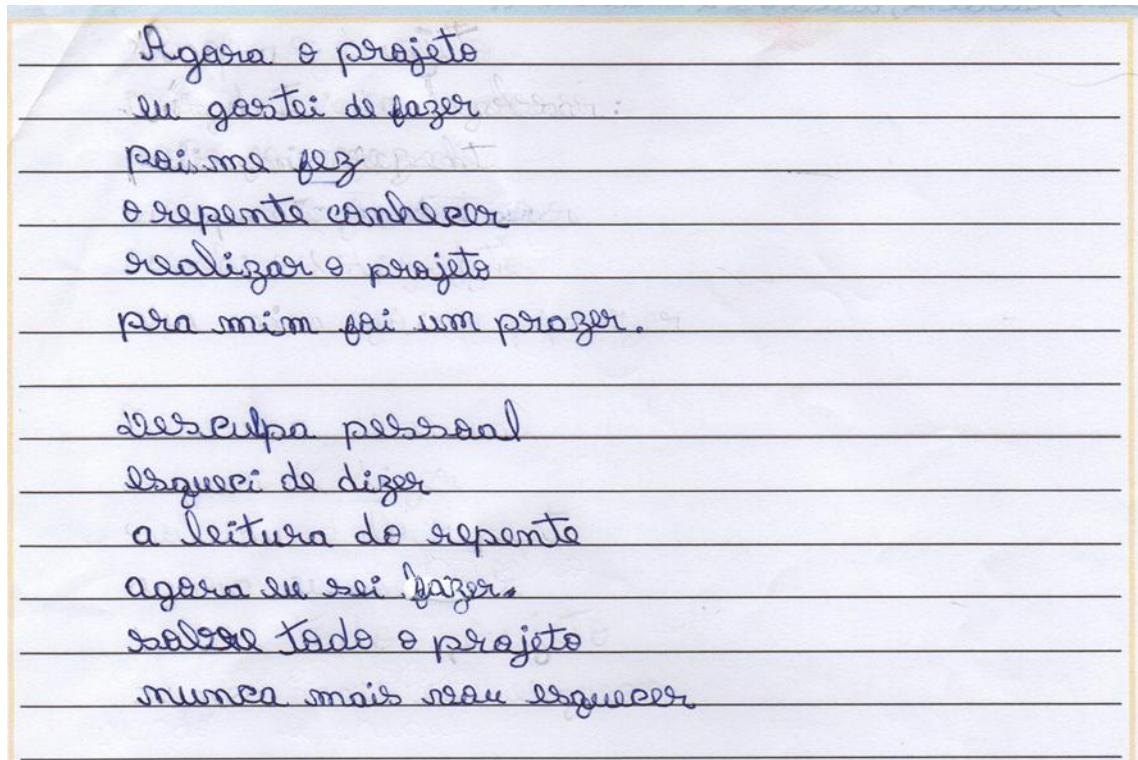 Agora o projeto
eu gostei de fazer
pois me fez
o repente conhecer
realizar o projeto
pra mim foi um prazer.
Desculpa pessoal
esqueci de dizer
a leitura do repente
agora eu sei fazer.
sobre todo o projeto
nunca mais vou esquecer